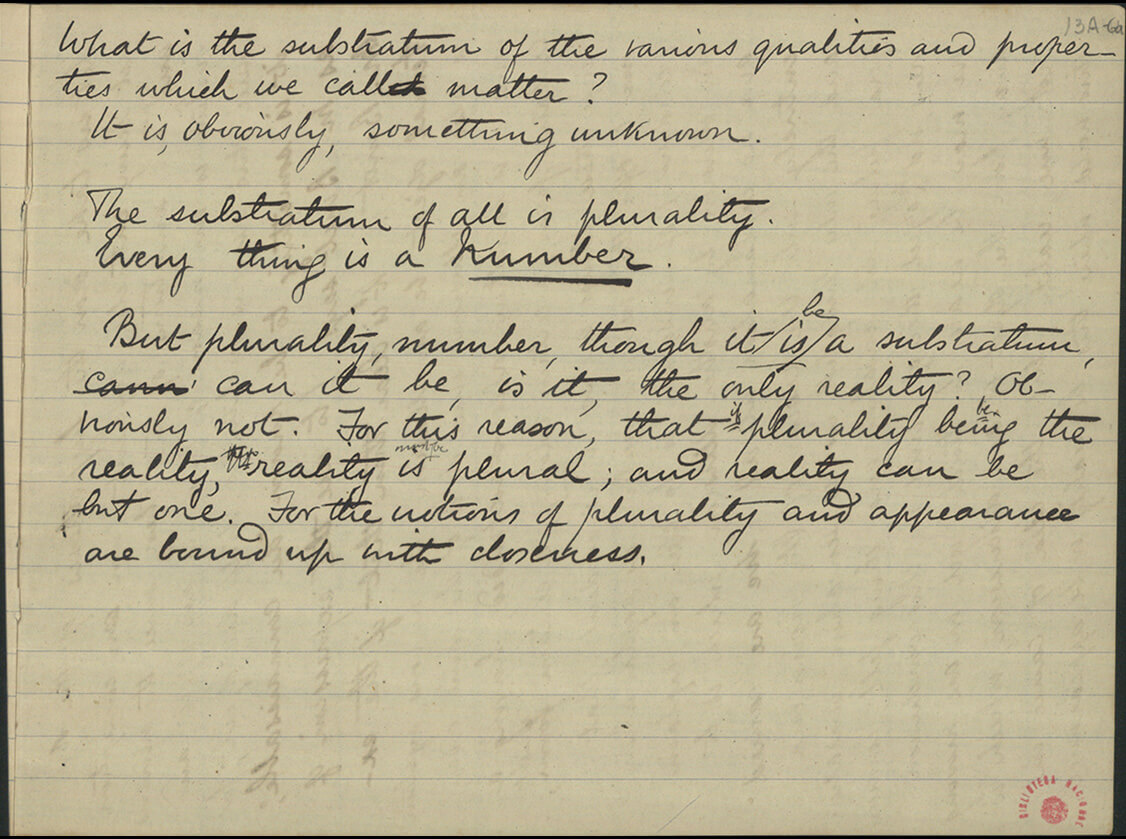 13A-6a
What is the substratum of the various qualities and proper-
ties which we call matter?
It is, obviously, something unknown.
The substratum of all is plurality.
Every thing is a Number.
But plurality, number, though it is be a substratum,
can it be, is it, the only reality? Ob-
viously not. For this reason, that if plurality being be the
reality, reality is must be plural; and reality can be
but one. For the notions of plurality and appearance
are bound up with closeness.
BIBLIOTECA NACIONAL